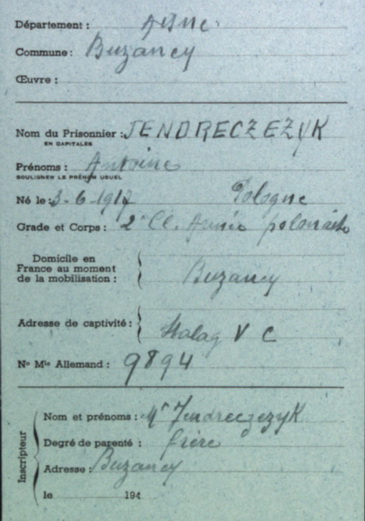 Département : Aisne
Commune : Buzancy
Œuvre :
Nom du Prisonnier : JENDRECZEZYK
EN CAPITALES
Prénoms : Antoine
SOULIGNER LE PRÉNOM USUEL
Né le : 3-6-1917 Pologne
Grade et Corps : 2e Cl. Armée polonaise
Domicile en
France au moment
de la mobilisation : Buzancy
Adresse de captivité : Stalag V C
No Mle Allemand : 9894
Inscripteur
Nom et prénoms : Mr Jendreczezyk
Degré de parenté : frère
Adresse : Buzancy
le 194